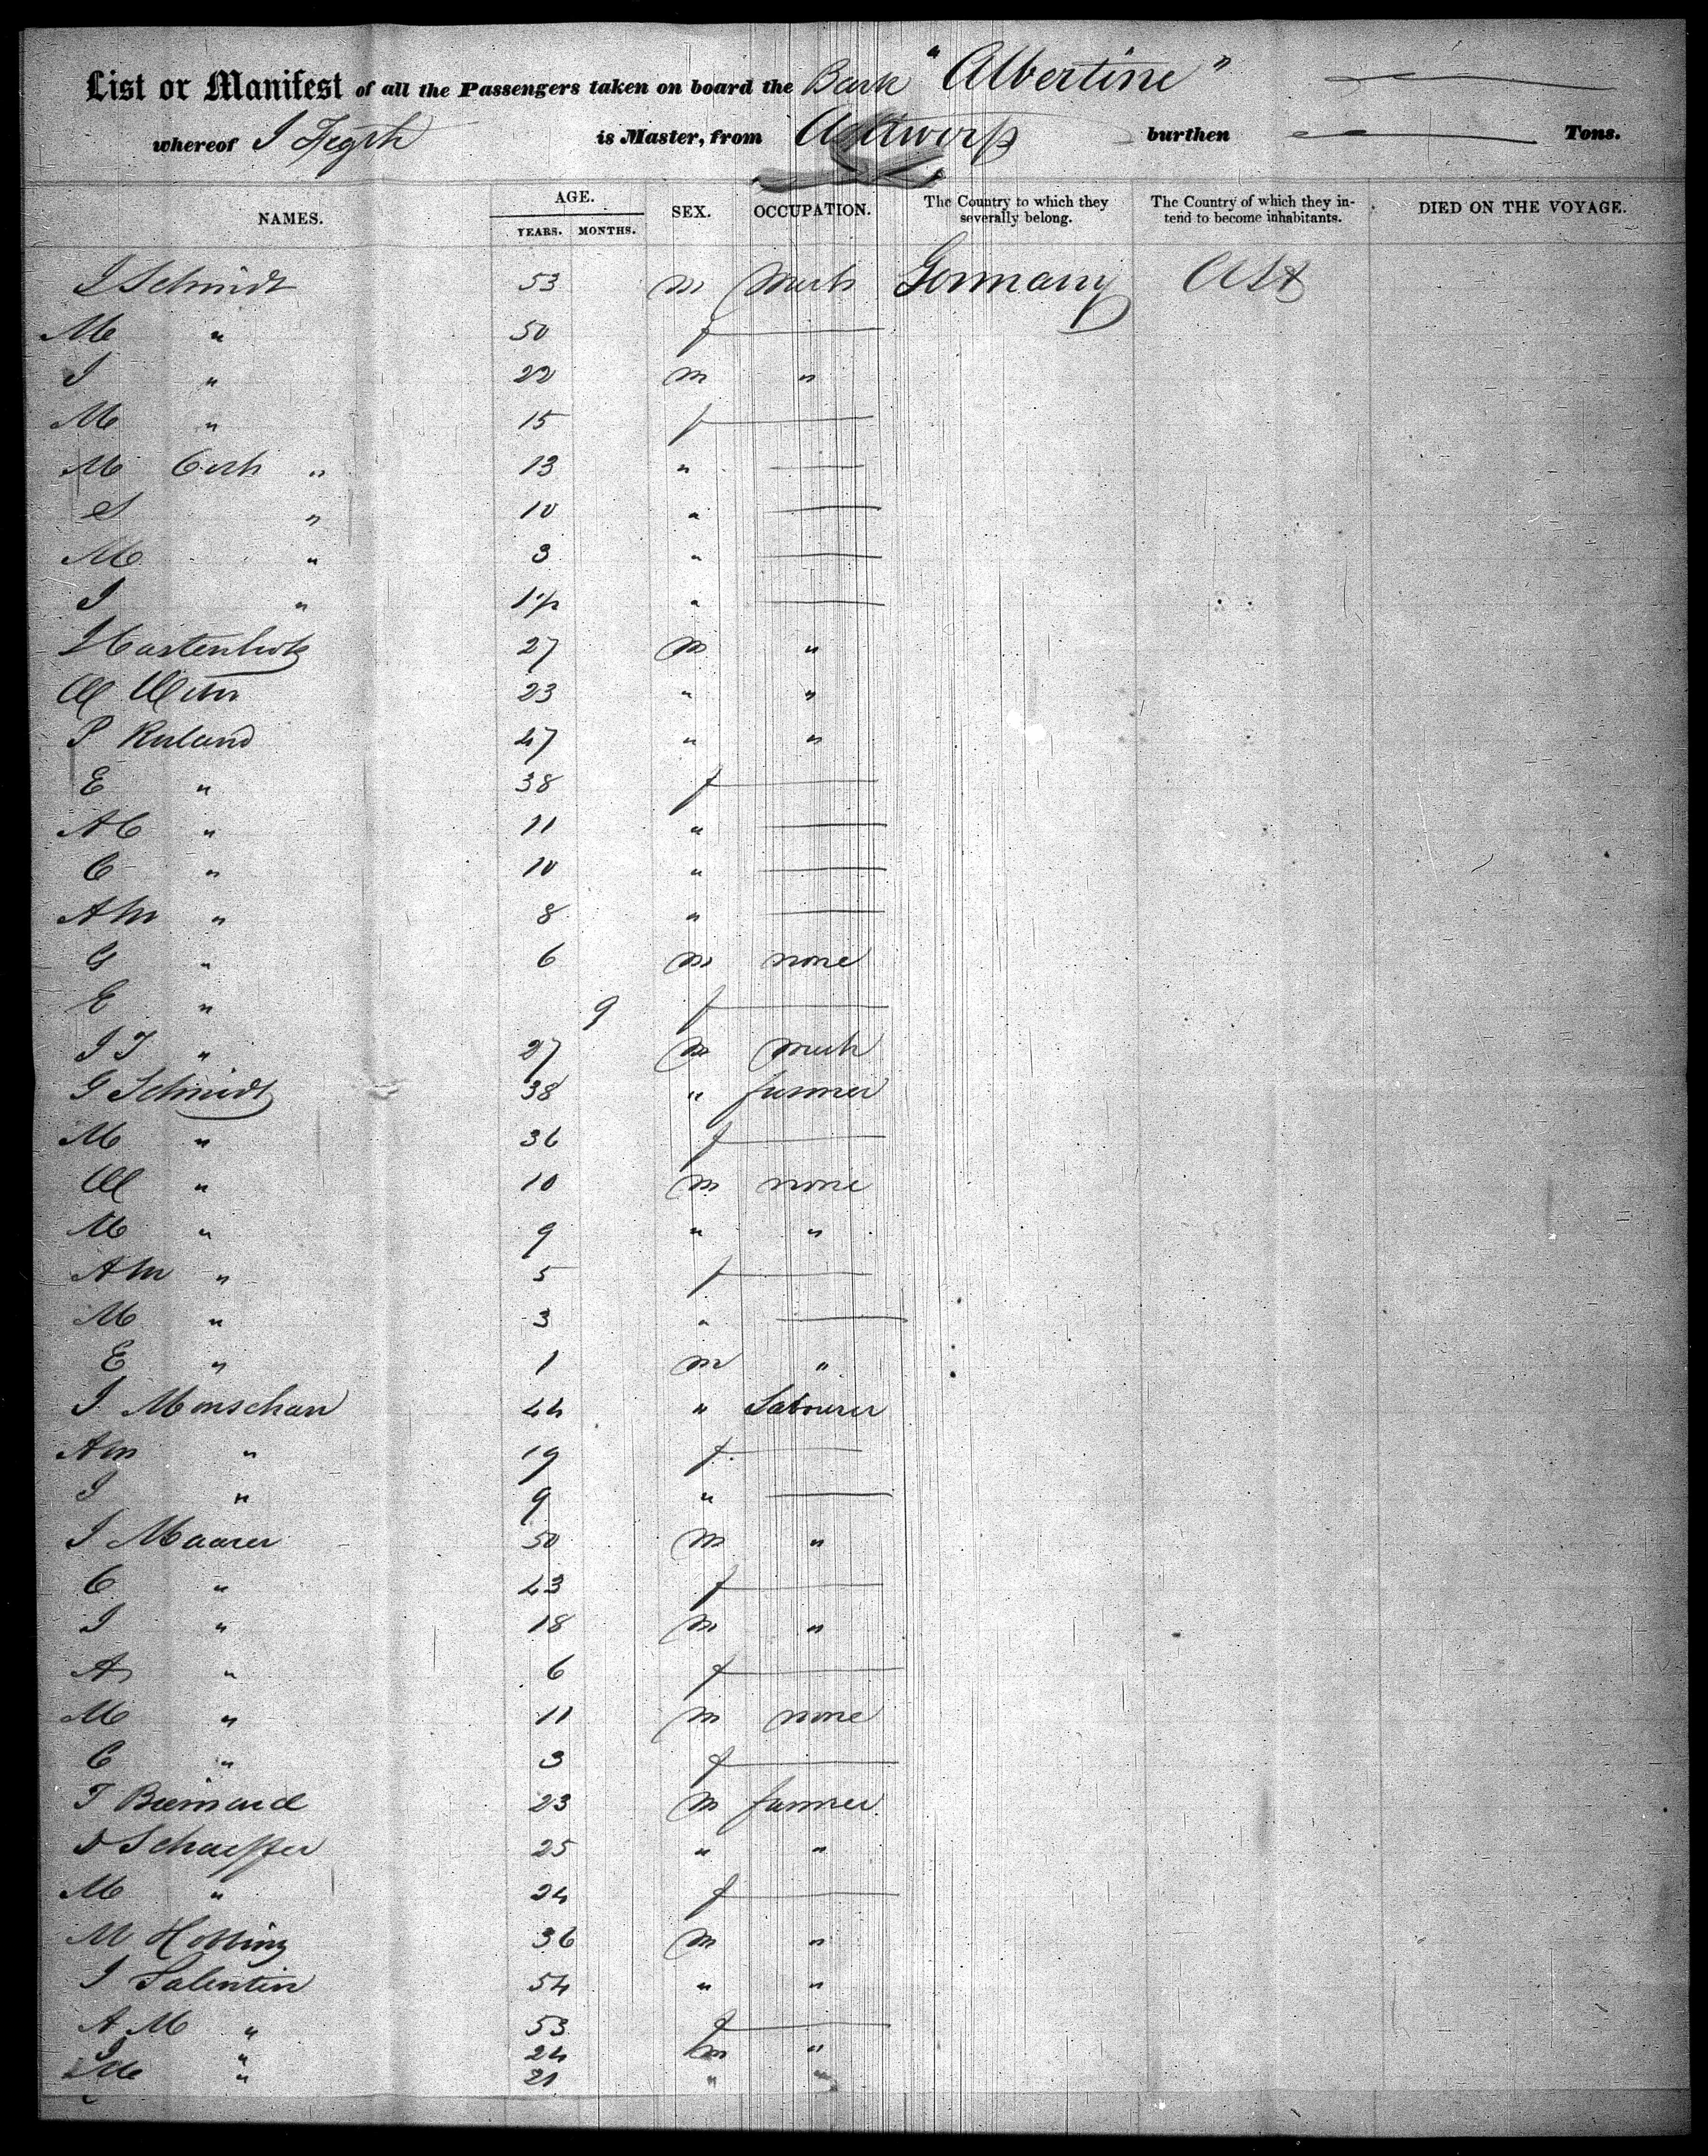 List or Manifest of all the Passengers taken on board the Bark "Albertine"
whereof J is Master, from Antwerp burthen Tons.
NAMES. AGE. YEARS. MONTHS. SEX. OCCUPATION. The Country to which they severally belong. The Country of which they intend to become inhabitants. DIED ON THE VOYAGE.
J Schmidt 53 m Mech Germany USA
M " 50 f
J " 22 m "
M " 15 f
M Cath " 13 "
S " 10 "
M " 3 "
J " 1 1/2 "
27 m "
W 23 " "
P Ruland 47 " "
E " 38 f
A C " 11 "
C " 10 "
A M " 8 "
G " 6 m none
E " 9 f
J J " 27 m mech
G Schmidt 38 " farmer
M " 36 f
W " 10 m none
M " 9 " "
A M " 5 f
M " 3 "
E " 1 m "
J Monschau 44 " Labourer
A M " 19 f
J " 9 "
J Maarer 50 m "
C " 43 f
J " 18 m "
A " 6 f
M " 11 m none
C " 3 f
T 23 m farmer
D Schaeffer 25 " "
M " 24 f
M 36 m "
J Salentin 54 " "
A M " 53 f
J " 24 m "
M " 21 " "